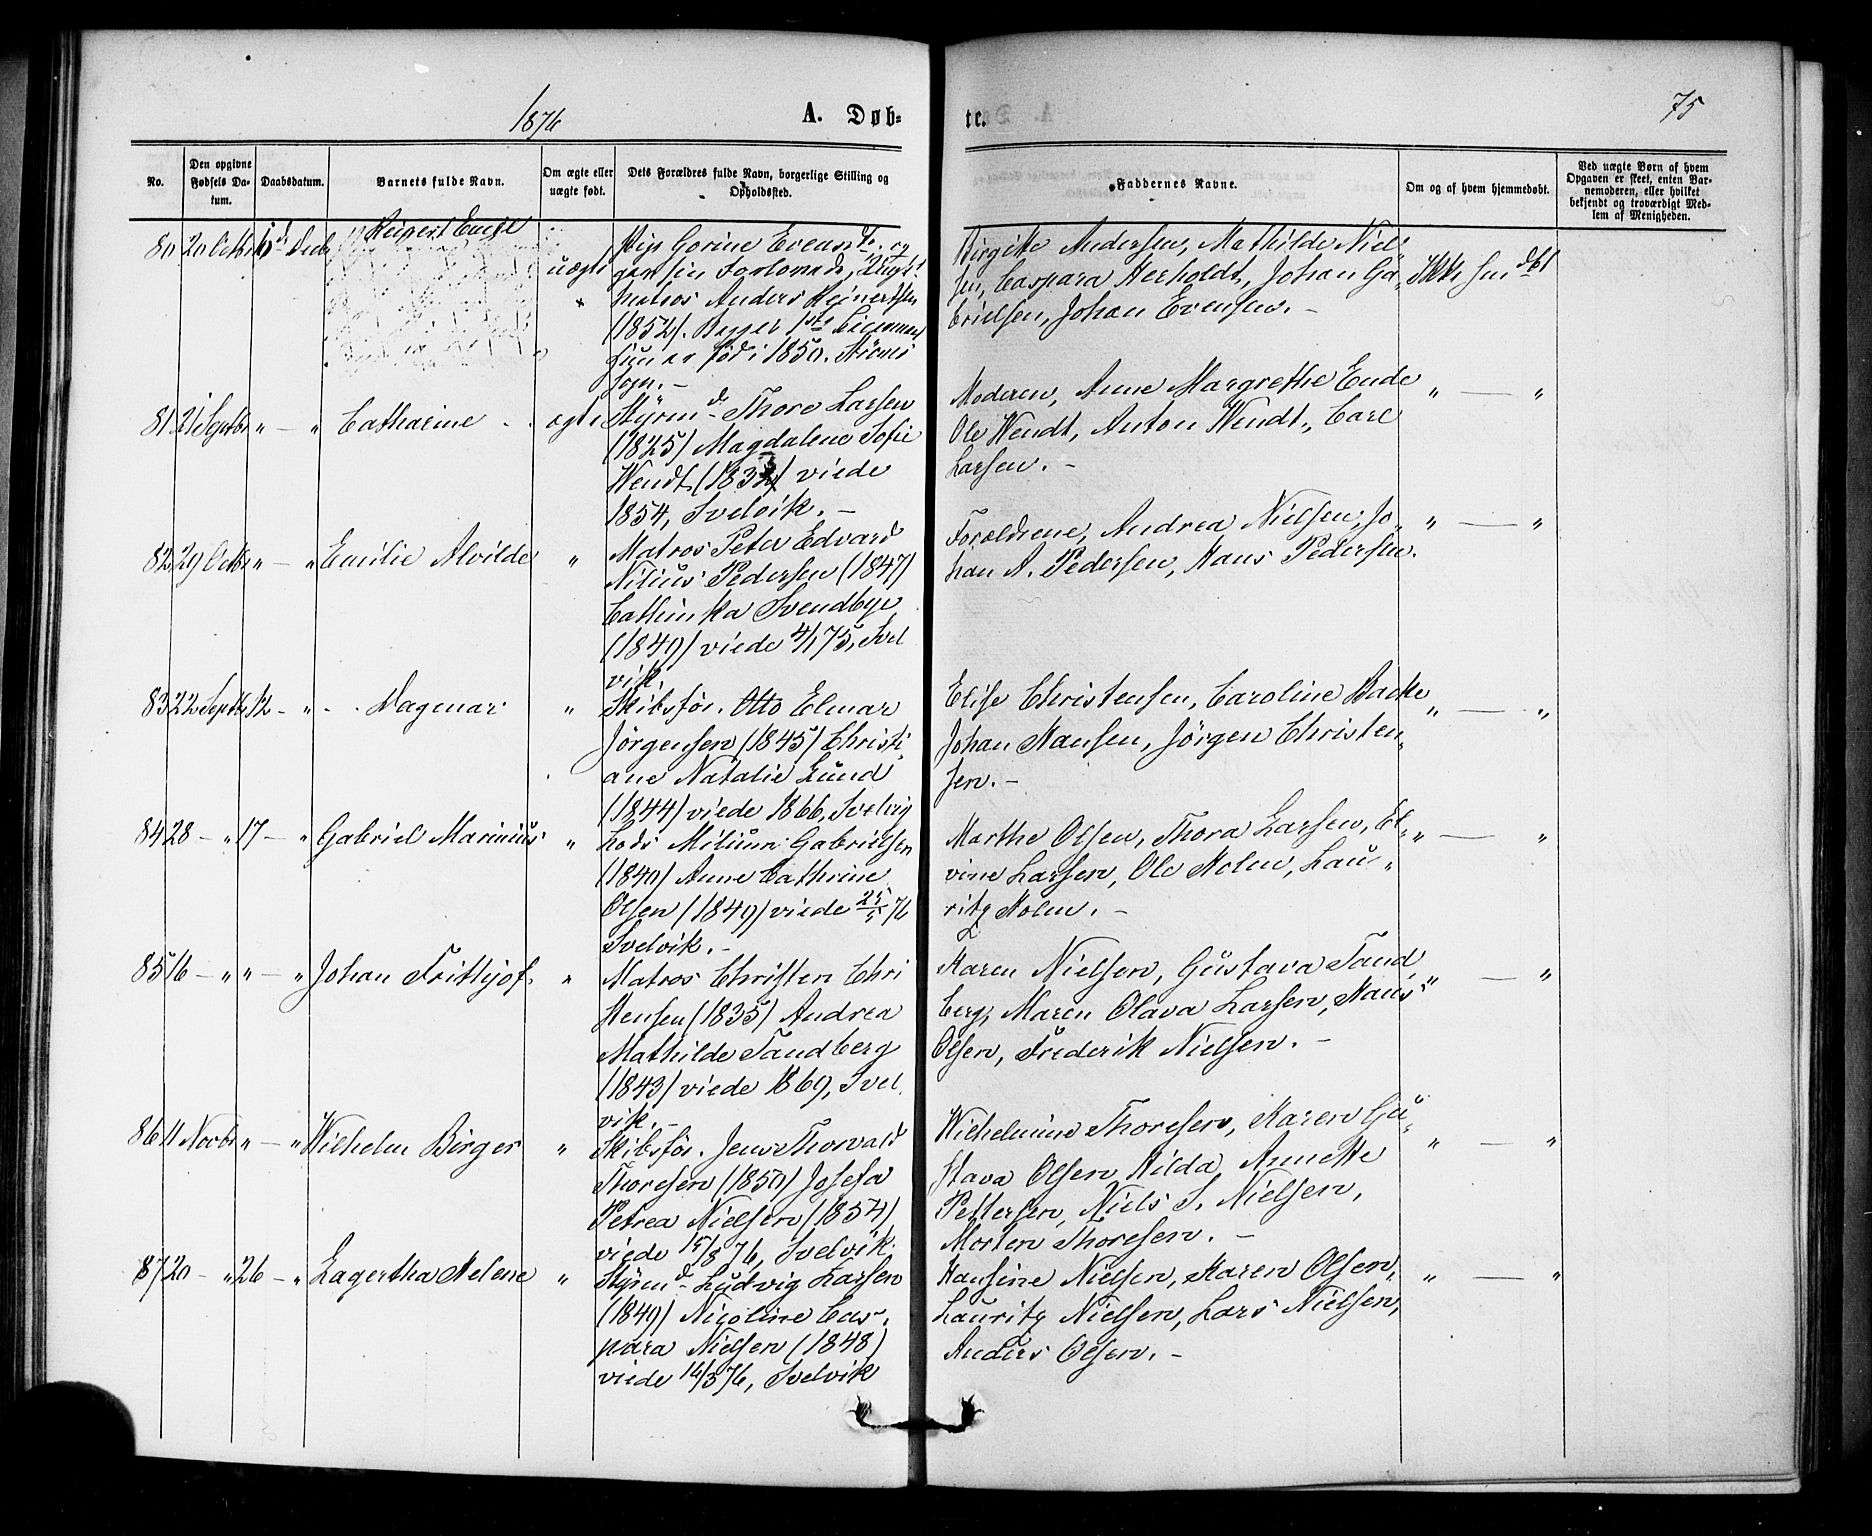 1876 A. Døb-
te. 75
No. Den opgivne Fødsels Datum. Daabsdatum. Barnets fulde Navn. Om ægte eller uægte født. Dets Forældres fulde Navn, borgerlige Stilling og Opholdssted.
Faddernes Navne. Om og af hvem hjemmedøbt. Ved uægte Børn af hvem Opgaven er skeet, enten Barnemoderen, eller hvilket bekjendt og troværdigt Medlem af Menigheden.
80 20 Octbr Decbr uægte Pige Gorine
Matros Anders Reinertsen
(1852).
født i 1850.
Sogn. -
Birgitte Andersen, Mathilde Niel
sen, Caspara Herholdt, Johan Ga
brielsen, Johan Evensen. -
Ikke hm dbt
81 21 Septbr " - " Catharine ægte Styrmd Thore Larsen
(1825) Magdalene Sofie
Wendt (183 ) viede
1854, Svelvik. -
Moderen, Anne Margrethe Ende
Ole Wendt, Anton Wendt, Carl
Larsen. -
" — "
82 29 Octbr " - " Emilie Alvilde " Matros Peter Edvard
Nilius Pedersen (1847)
Cathinka Svendbye
(1849) viede 4/1 75, Svel
vik.
Forældrene, Andrea Nielsen, Jo
han A. Pedersen, Hans Pedersen.
" — "
83 22 Septbr 12 - " Dagmar " Skibsfør. Otto Elmar
Jørgensen (1845) Christi
ane Natalie Lund
(1844) viede 1866, Svelvig
Elise Christensen, Caroline Backe
Johan Hansen, Jörgen Christen
sen. -
" — "
84 28 - " 17 - " Gabriel Marinius " Lods Gabrielsen
(1840) Anne Cathrine
Olsen (1849) viede 76
Svelvik. -
Marthe Olsen, Thora Larsen, El
vine Larsen, Ole Holm, Lau
ritz Holm. -
" — "
85 16 - " " - " Johan Frithjof " Matros Christen Chri
stensen (1835) Andrea
Mathilde Tandberg
(1843) viede 1869, Svel
vik. -
Karen Nielsen, Gustava Tand
berg, Maren Olava Larsen, Hans
Olsen, Frederik Nielsen. -
" — "
86 11 Novbr " - " Wilhelm Birger " Skibsfør. Jens Thorvald
Thoresen (1850) Josefa
Petrea Nielsen (1854)
viede 15/8 76, Svelvik.
Wilhelmine Thoresen, Karen Gu
stava Olsen, Hilda Annette
Pettersen, Niels S. Nielsen,
Morten Thoresen. -
" — "
87 20 - " 26 - " Lagertha Helene " Styrmd Ludvig Larsen
(1849) Nicoline Cas
para Nielsen (1848)
viede 16/3 76, Svelvik
Hansine Nielsen, Karen Olsen,
Lauritz Nielsen, Lars Nielsen,
Anders Olsen. -
" — "